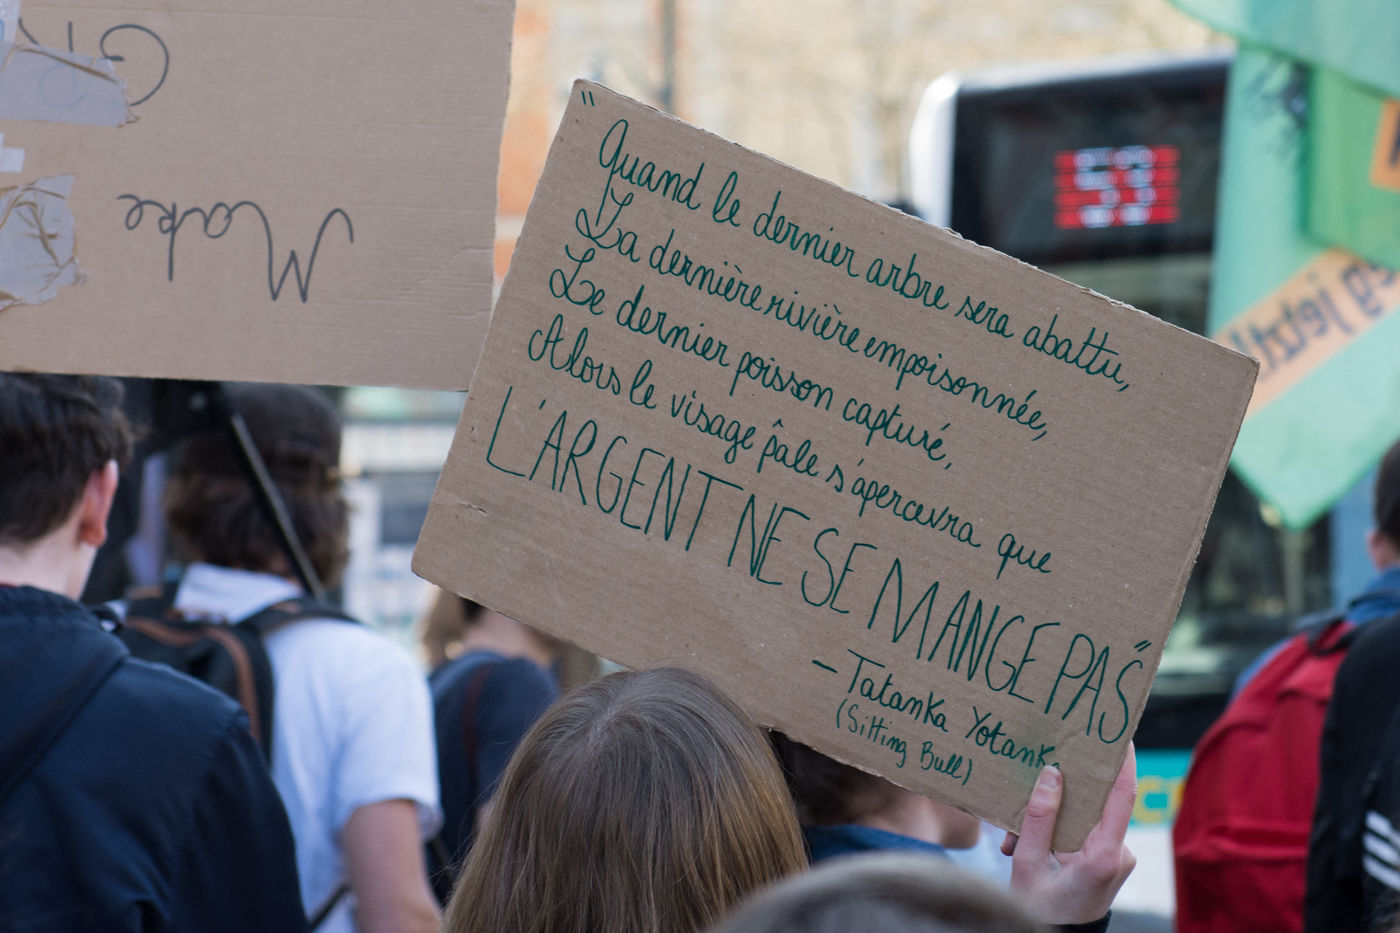 Make
"
Quand le dernier arbre sera abattu,
La dernière rivière empoisonnée,
Le dernier poisson capturé,
Alors le visage pâle s'apercevra que
L'ARGENT NE SE MANGE PAS"
- Tatanka Yotanka
(Sitting Bull)
53